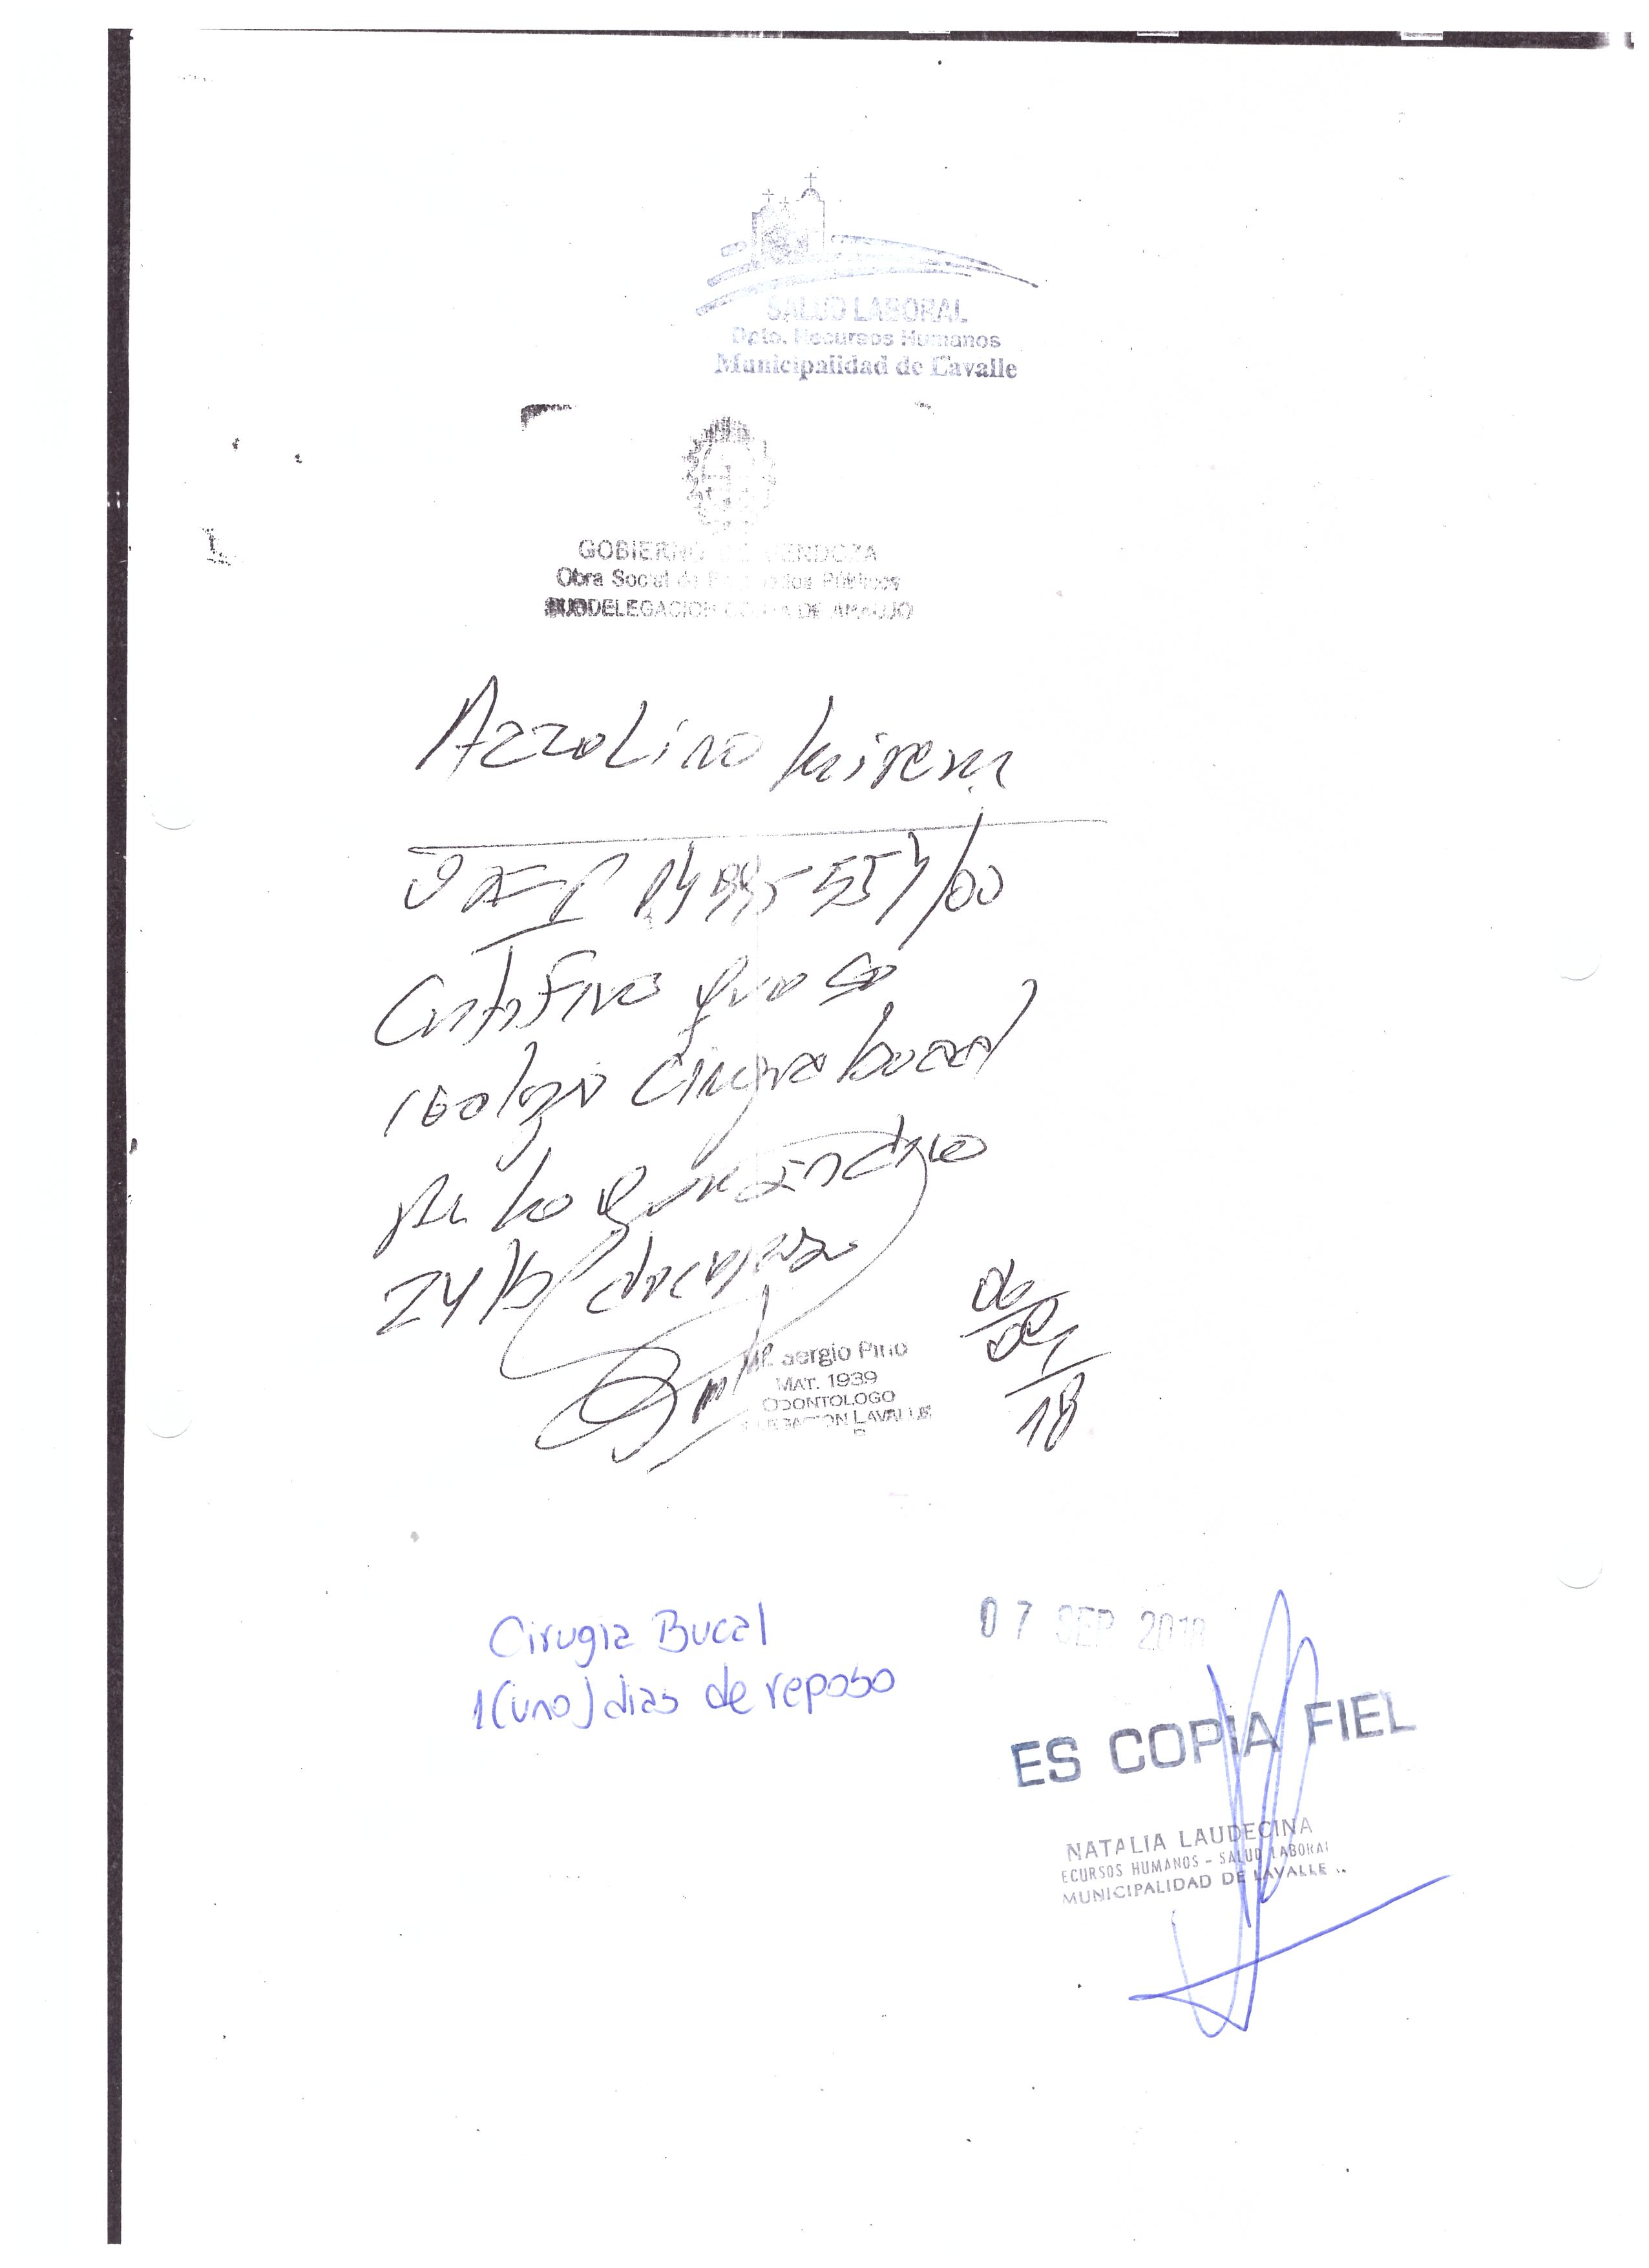 SALUD LABORAL
Dpto. Recursos Humanos
Municipalidad de Lavalle
GOBIERNO DE MENDOZA
Obra Social de Empleados Públicos
SUBDELEGACION COSTA DE ARAUJO
Azzolino
Certifico que se
realizo Cirugia bucal
por lo que indico
24 hs descanso
Sergio Pino
MAT. 1939
ODONTOLOGO
DELEGACION LAVALLE
06/09/18
Cirugia Bucal
1(uno) dias de reposo
07 SEP 2018
ES COPIA FIEL
NATALIA LAUDECINA
ECURSOS HUMANOS - SALUD LABORAL
MUNICIPALIDAD DE LAVALLE